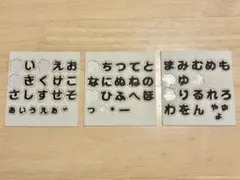 い えお
きくけこ
さしすせそ
ぁぃぅぇぉ
ちつてと
なにぬねの
ひふへほ
っ ー
まみむめも
ゆ
りるれろ
わをん ゃゅょ